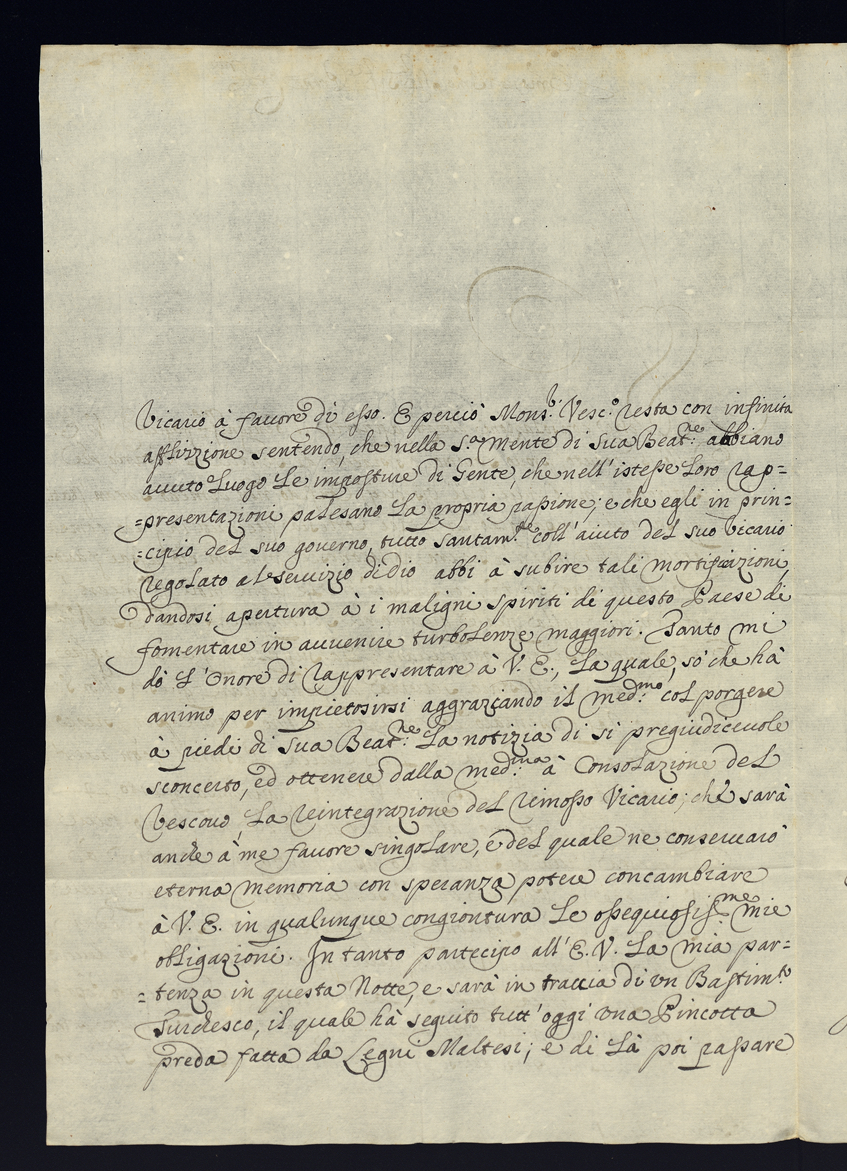 Vicario à fauore di esso. E perciò Mons.r Vesc.o resta con infinita
afflizzione sentendo, che nella S.a mente di Sua Beat.ne abbiano
auuto luogo le imposture di Gente, che nell'istesse loro rap=
=presentazioni palesano la propria passione; e che egli in prin=
=cipio del suo gouerno, tutto santam.te coll'aiuto del suo Vicario
regolato al seruizio di Dio abbi à subire tali mortificazioni,
dandosi apertura à i maligni spiriti di questo Paese di
fomentare in auuenire turbolenze maggiori. Tanto mi
dò l'Onore di rappresentare à V. E., la quale, sò che hà
animo per impietosirsi aggraziando il med.mo col porgere
à piedi di Sua Beat.ne la notizia di si pregiudiceuole
sconcerto, ed ottenere dalla med.ma à Consolazione del
Vescouo, la reintegrazione del rimosso Vicario; chè sarà
anche à me fauore singolare, e del quale ne conseruarò
eterna memoria con speranza potere concambiare
à V. E. in qualunque congiontura le ossequiosiss.me mie
obbligazioni. In tanto partecipo all'E. V. la mia par=
=tenza in questa Notte, e sarà in traccia di un Bastim.to
Turchesco, il quale hà seguito tutt'oggi una Pincotta
preda fatta da Legni Maltesi; e di là poi passare